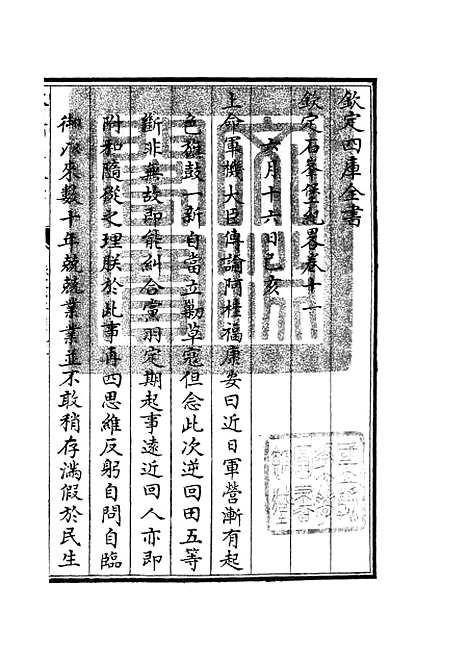 欽定四庫全書
欽定石峯堡紀畧卷十一
六月十六日己亥
上命軍機大臣傳諭阿桂福康安曰近日軍營漸有起
色旗鼓一新自當立勦草寇但念此次逆回田五等
斷非無故即能糾合黨羽定期起事遠近回人亦即
附和隨從之理朕於此事再四思維反躬自問自臨
御以來數十年兢兢業業並不敢稍存滿假於民生